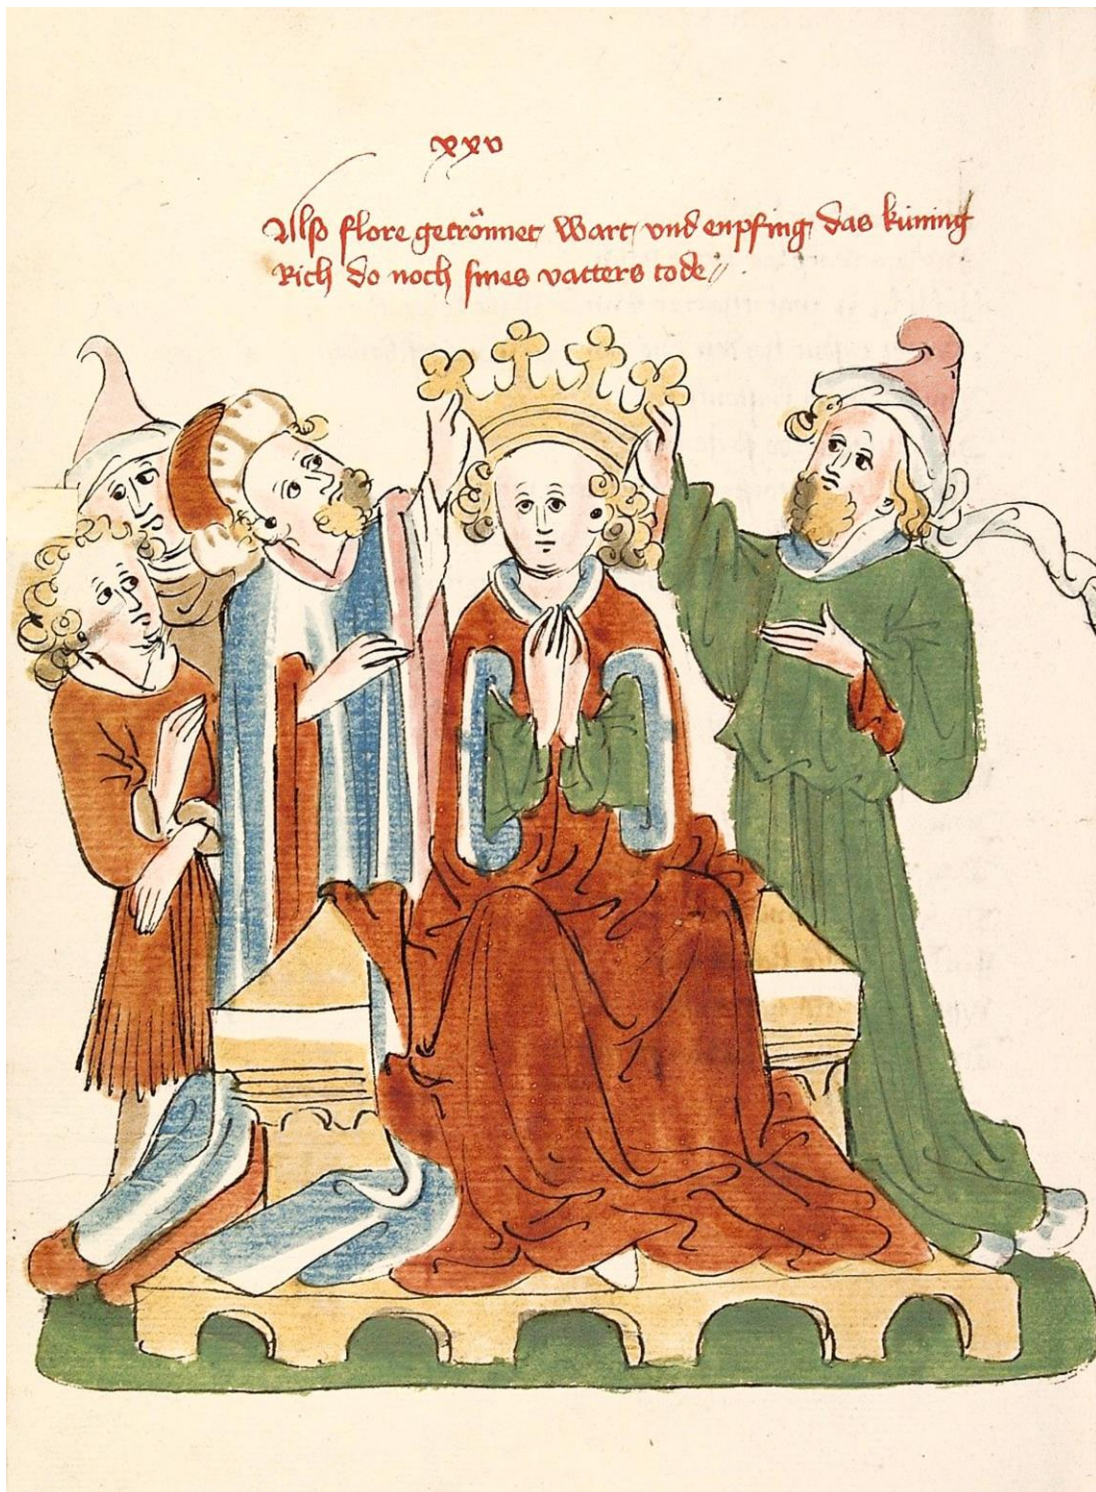 xxv
Also flore gecrönnet wart vnd enpfing das küning
Rich do noch sines vatters tode